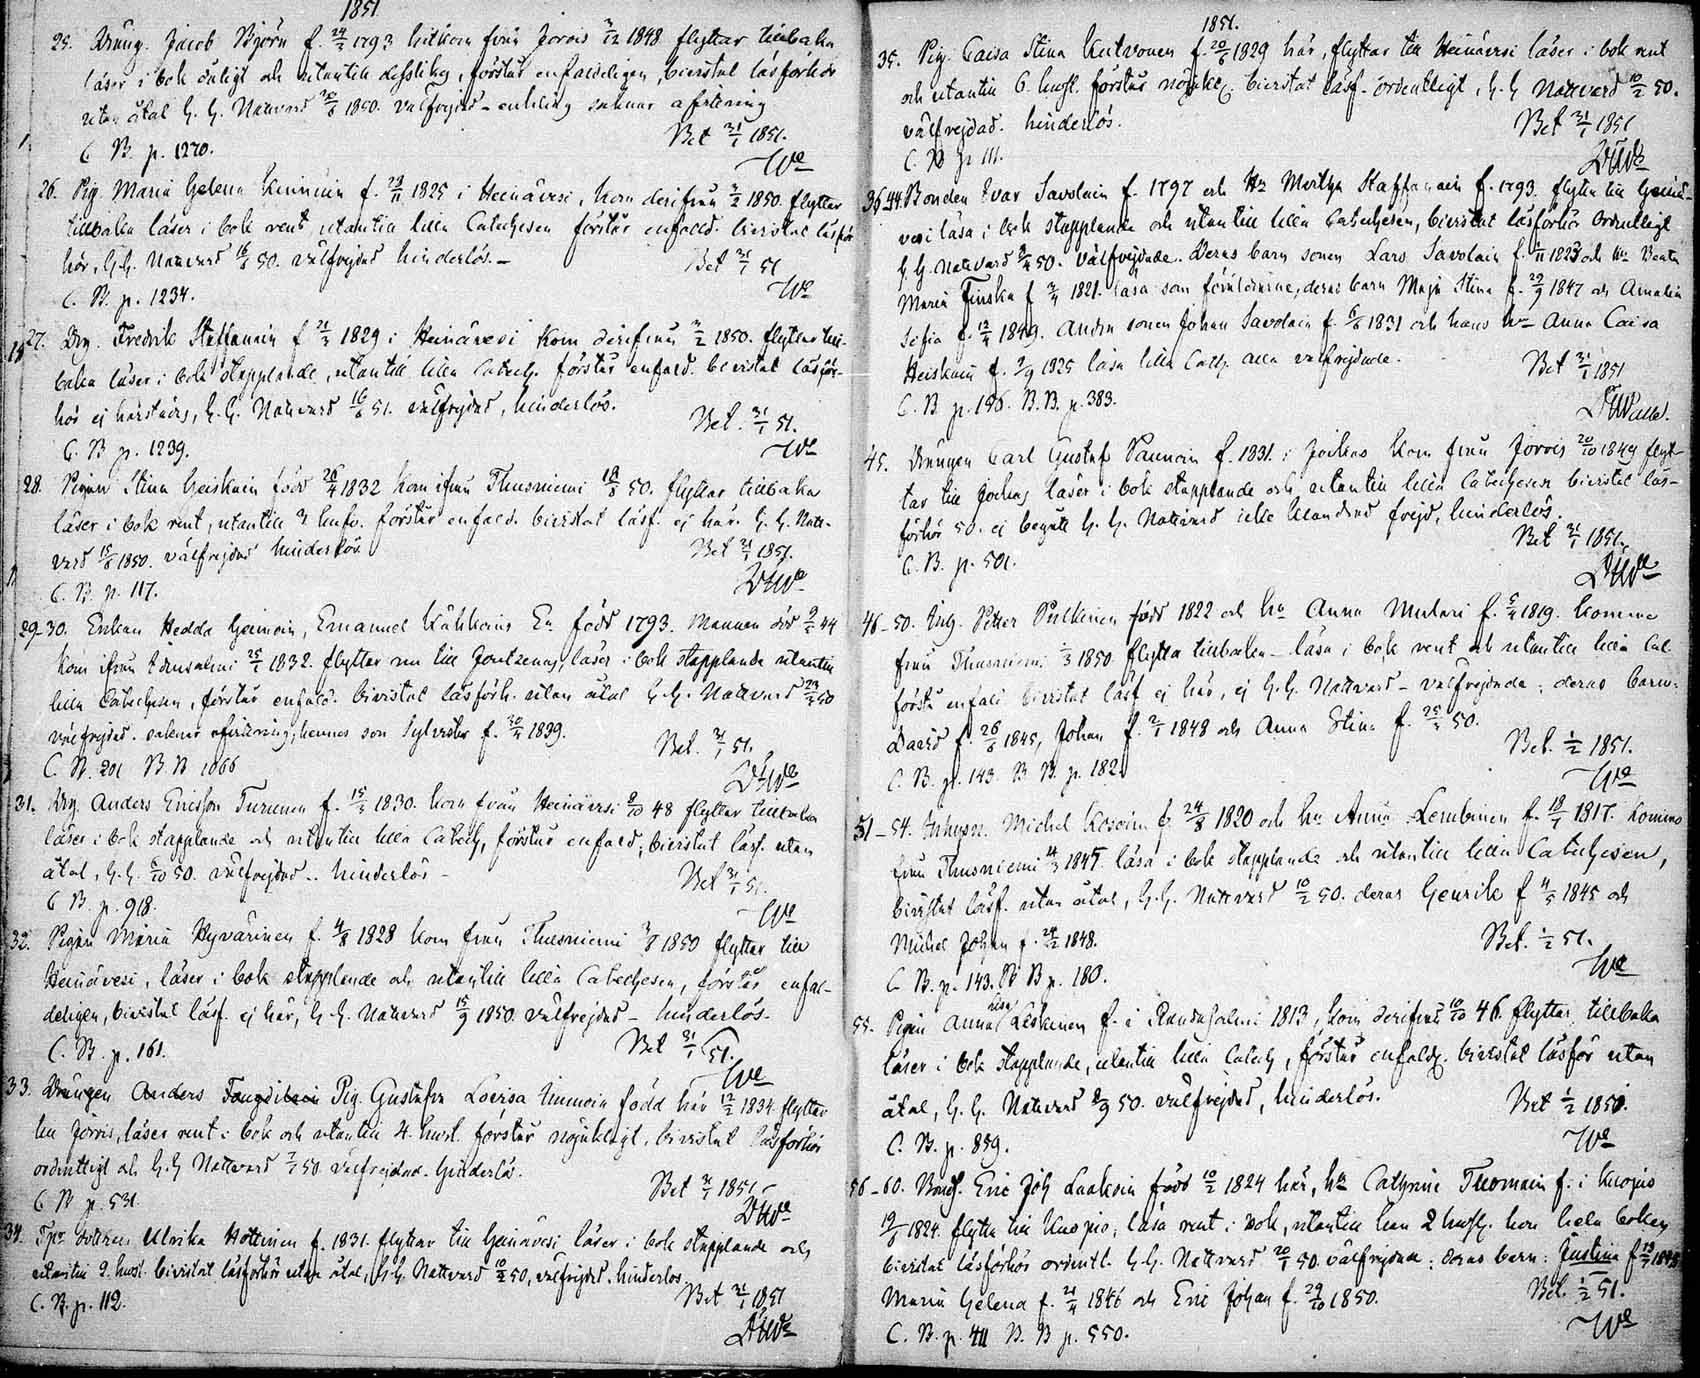 1851
25. Dräng. Jacob Björn f. 24/2 1793 hitkom från Jorois 3/12 1848 flyttar tillbaka
läser i bok dåligt och utantill förstår enfaldeligen, bevistat läsförhör
utan åtal H. H. Nattvard 1850. välfrejdad - enkling saknar afvitring
Bet 31/1 1851.
C. B. p. 1270.
We
26. Pig. Maria Helena f. 29/11 1825 i Heinävesi, kom derifrån 3/2 1850. flyttar
tillbaka läser i bok rent, utantill lilla Catechesen förstår enfald. bevistat läsför-
hör, H. H. Nattvard 16/6 50. välfrejdad hinderlös. -
Bet 31/1 51
C. B. p. 1234.
We
27. Drg. Fredrik Staffanain f 21/3 1829 i Heinävesi kom derifrån 3/2 1850. flyttar till-
baka läser i bok stapplande, utantill lilla Catech. förstår enfald. bevistat läsför-
hör ej härstädes, H. H. Nattvard 16/6 51. välfrejdad, hinderlös.
Bet. 31/1 51.
C. B. p. 1239.
We
28. Pigan Stina Heiskain född 26/4 1832 kom ifrån Thusniemi 18/8 50. flyttar tillbaka
läser i bok rent, utantill 3 hufv. förstår enfald. bevistat läsf. ej här. H. H. Natt-
vard 15/8 1850. välfrejdad hinderlös
Bet 31/1 1851.
C. B. p. 117.
DHWe
29-30. Enkan Hedda Heinoin, Emanuel Kähköins En. född 1793. Mannen död 9/5 44
kom ifrån Idensalmi 25/1 1832. flyttar nu till läser i bok stapplande utantill
lilla Catechesen, förstår enfald. bevistat läsförh. utan åtal H. H. Nattvard 50
välfrejdad. saknar afvitring, hennes son Sylvester f. 30/4 1839.
Bet. 31/1 51.
C. B. 201 B B 1066
DHWe
31. Drg. Anders Ericsson Turunen f. 15/3 1830. kom från Heinävesi 8/10 48 flyttar tillbaka
läser i bok stapplande och utantill lilla Catech, förstår enfald, bevistat läsf. utan
åtal, H. H. 6/10 50. välfrejdad .. hinderlös -
Bet 31/1 51.
C B. p. 918.
We
32. Pigan Maria Hyvärinen f. 4/8 1828 kom från Thusniemi 1850 flyttar till
Heinävesi, läser i bok stapplande och utantill lilla Catechesen, förstår enfal-
deligen, bevistat läsf. ej här, H. H. Nattvard 15/9 1850. välfrejdad - hinderlös.
Bet 31/1 51.
C. B. p. 161.
We
33. Drängen Anders Pig. Gustafva Lovisa född här 12/2 1834 flyttar
till Jorois, läser rent i bok och utantill 4. hust. förstår nöjaktigt, bevistat läsförhör
ordentligt och H. H Nattvard 50 välfrejdad. hinderlös.
Bet 31/1 1851
C B p. 531.
DHWe
34. Ulrika f. 1831. flyttar till Heinävesi läser i bok stapplande och
utantill 2. hust. bevistat läsförhör utan åtal, H. H. Nattvard 10/2 50, välfrejdad, hinderlös
Bet 31/1 1851
C. B. p. 112.
DHWe
1851.
35. Pig. Caisa Stina f. 20/6 1829 här, flyttar till Heinävesi läser i bok rent
och utantill 6 hust. förstår nöjakl. bevistat läsf. ordentligt, H. H Nattvard 10/2 50.
välfrejdad. hinderlös.
Bet 31/1 1851
C. B p 111.
DHWe
36-44. Bonden Ivar Savolain f. 1797 och Hu Staffanain f. 1793. flytta till Heinä-
vesi läsa i bok stapplande och utantill lilla Catechesen, bevistat läsförhör ordentligt
H. H. Nattvard 50. välfrejdade. Deras barn sonen Lars Savolain f. 1/11 1823 och Hu Beata
Maria Finska f 3/4 1821. läsa som föräldrarne, deras barn Maja Stina f. 29/9 1847 och Amalia
Sofia f. 12/4 1849. Andra sonen Johan Savolain f. 6/8 1831 och hans hu Anna Caisa
Heiskain f. 1825 läsa lilla Catech. alla välfrejdade.
Bet 31/1 1851
C. B. p. 196. B. B. p. 383.
45. Drängen Carl Gustaf Paunoin f. 1831. i Jockas kom från Jorois 20/10 1849 flyt-
tar till Jockas läser i bok stapplande och utantill lilla Catechesen bevistat läs-
förhör 50. ej begått H. H. Nattvard icke klandrad frejd, hinderlös.
Bet 31/1 1851.
C. B. p. 501.
DHWe
46-50. Inh. Petter Pulkinen född 1822 och hu Anna f. 5/4 1819. komne
från Thusniemi 3 1850 flytta tillbaka - läsa i bok rent och utantill lilla Cat.
förstå enfald bevistat läsf ej här, ej H. H. Nattvard - välfrejdade; deras barn:
David f. 26/6 1845, Johan f. 2/1 1848 och Anna Stina f. 25/3 50.
Bet. 1/2 1851.
C. B. p. 143. B B. p. 182.
We
51-54. Inhyses. Michel f. 24/8 1820 och hu Anna f. 18/1 1817. komne
från Thusniemi 4/3 1845 läsa i bok stapplande och utantill lilla Catechesen,
bevistat läsf. utan åtal, H. H. Nattvard 10/2 50. deras Henrik f 4/5 1845 och
Michel Johan f. 24/2 1848.
Bet. 1/2 51.
C B. p. 143. B B p. 180.
We
55. Pigan Anna Lisa Leskinen f. i Randasalmi 1813, kom derifrån 10/10 46. flyttar tillbaka
läser i bok stapplande, utantill lilla Catech, förstår enfald. bevistat läsför utan
åtal, H. H. Nattvard 8/9 50. välfrejdad, hinderlös.
Bet 1/2 1850.
C. B. p. 859.
We
56-60. Bond. Eric Joh Laaksin född 10/2 1824 här, hu Cathrine f. i Kuopio
1824. flytta till Kuopio, läsa rent i bok, utantill han 2 husfl. hon hela boken
bevistat läsförhör ordentl. H. H. Nattvard 20/1 50. välfrejdade; deras barn: Justina f
Maria Helena f. 21/4 1846 och Eric Johan f. 29/10 1850.
Bet. 1/2 51.
C. B. p. 411 B. B p. 550.
We